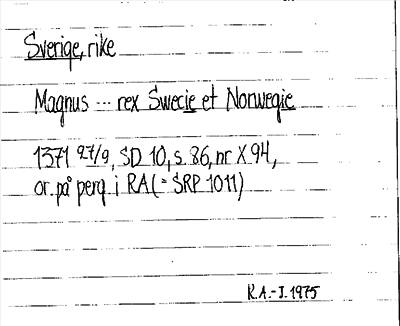 Sverige, rike
Magnus --- rex Swecie et Norwegie
1371 27/9, SD 10, s. 86, nr X 94,
or. på perg. i RA (= SRP 1011)
R.A.-J. 1975